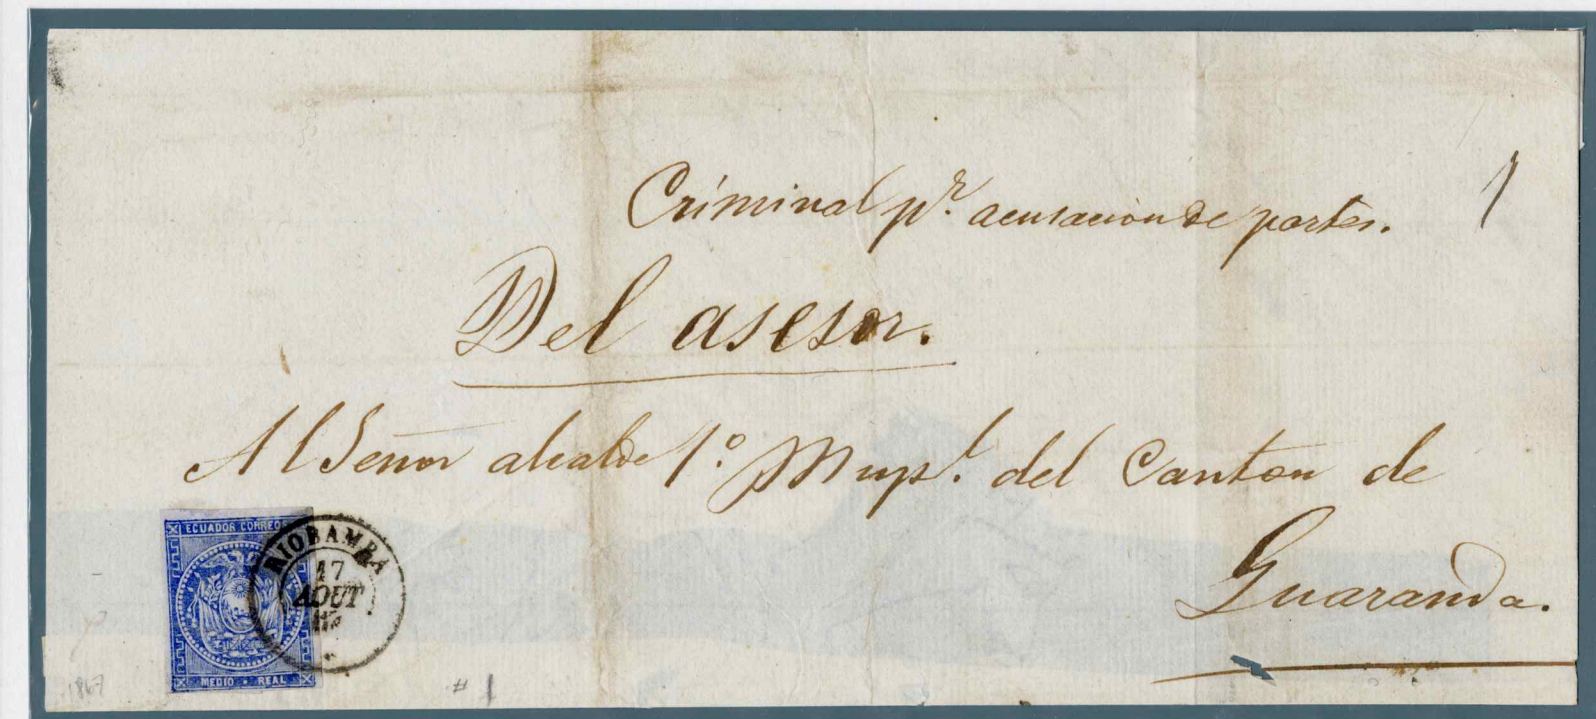 Criminal pr. acusacion de partes.
1
Del asesor.
Al Señor alcalde 1º. Mupl. del Canton de
Guaranda.
ECUADOR CORREOS
MEDIO REAL
RIOBAMBA
17
AOUT
1867
# 1